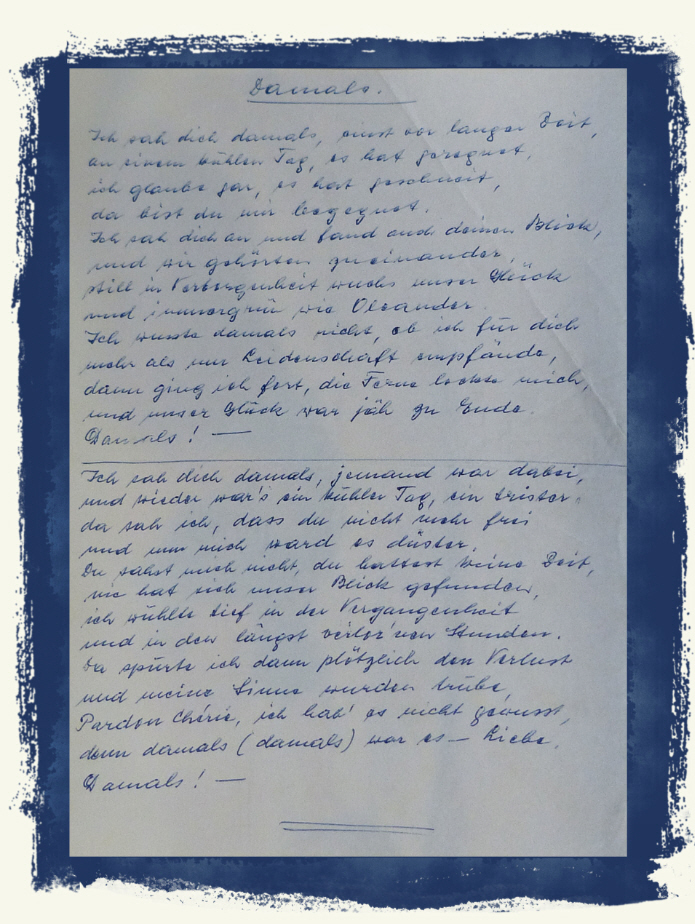 Damals.
Ich sah dich damals, einst vor langer Zeit,
an einem kühlen Tag, es hat geregnet,
ich glaube gar, es hat geschneit,
da bist du mir begegnet.
Ich sah dich an und fand auch deinen Blick,
und wir gehörten zueinander,
still in Verborgenheit wuchs unser Glück
und immergrün wie Oleander.
Ich wusste damals nicht, ob ich für dich
mehr als nur Leidenschaft empfände,
dann ging ich fort, die Ferne lockte mich,
und unser Glück war jäh zu Ende.
Damals! —
Ich sah dich damals, jemand war dabei,
und wieder war's ein kühler Tag, ein trister,
da sah ich, dass du nicht mehr frei
und um mich ward es düster.
Du sahst mich nicht, du hattest keine Zeit,
nie hat sich unser Blick gefunden,
ich wühlte tief in der Vergangenheit
und in den längst verlor'nen Stunden.
Da spürte ich dann plötzlich den Verlust
und meine Sinne wurden trübe,
Pardon Chérie, ich hab' es nicht gewusst,
denn damals (damals) war es — Liebe.
Damals! —